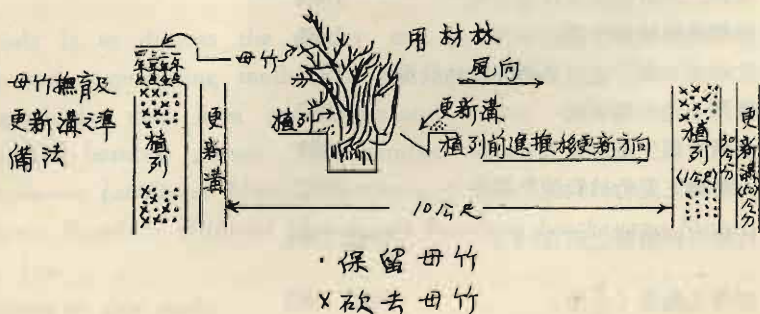 母竹撫育及
更新溝之準
備法
一年生
二年生
三年生
植列
更新溝
母竹
植列
用材林
風向
更新溝
植列前進推移更新方向
10公尺
植列(1公尺)
30公分
更新溝(50公分)
·保留母竹
×砍去母竹